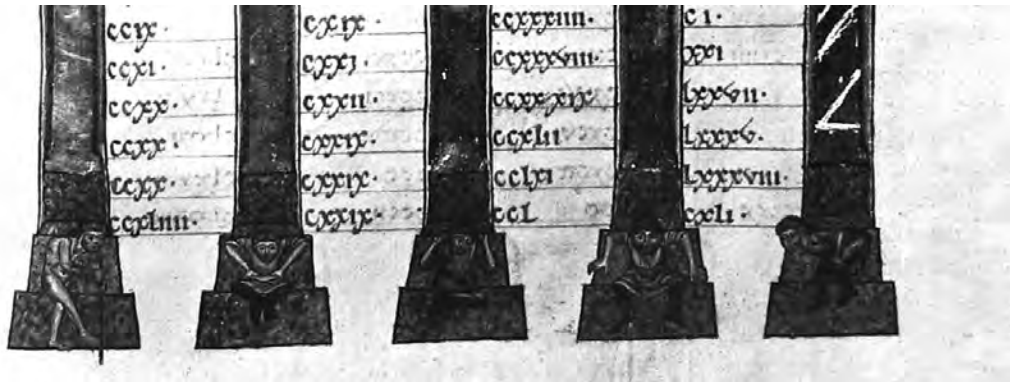 ccix· cxix ccxxxiiii· ci·
ccxi· cxxi· ccxxxviii· xxi
ccxx· cxxii· ccxxxix lxxvii·
ccxx· cxxix· ccxlii lxxxv·
ccxx· cxxix· cclxi lxxxviii·
ccxliiii· cxxix· ccl cxli·